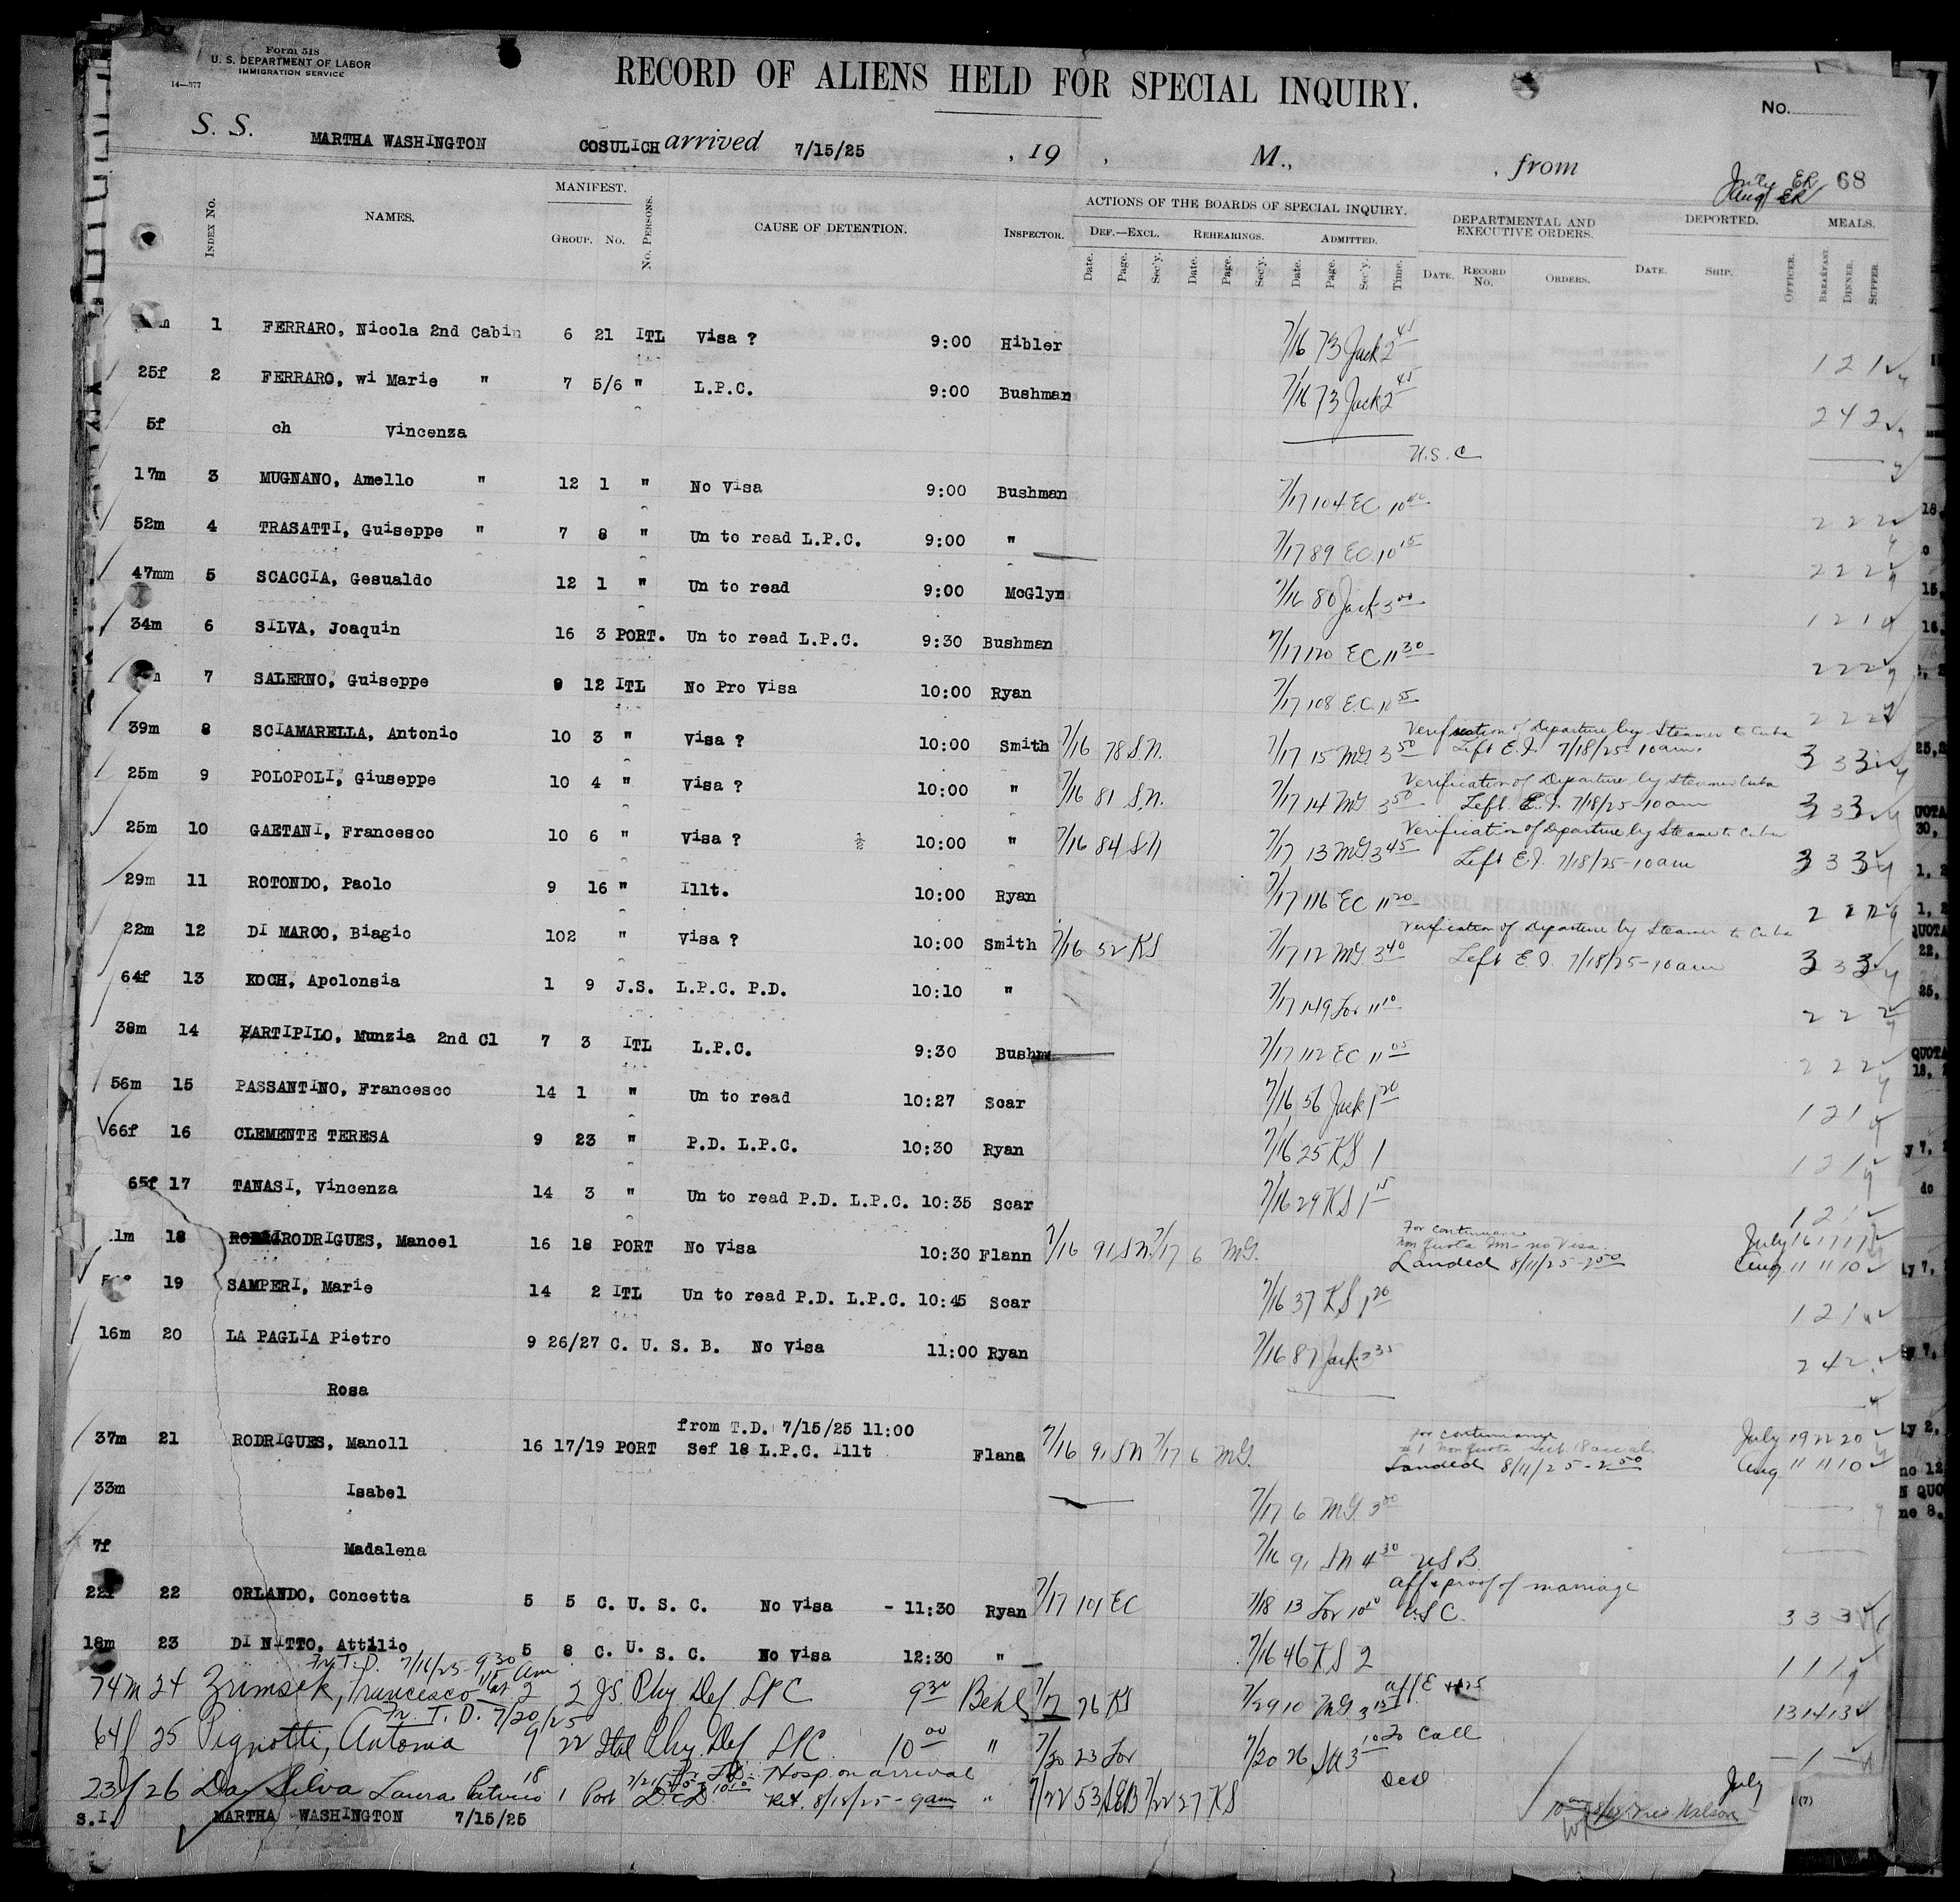 Form 518
U. S. DEPARTMENT OF LABOR
IMMIGRATION SERVICE
14—377
RECORD OF ALIENS HELD FOR SPECIAL INQUIRY.
No.
S. S. MARTHA WASHINGTON COSULICH arrived 7/15/25 , 19 , M., , from
July ER 68
Aug ER
INDEX No. NAMES. MANIFEST. GROUP. No. No. PERSONS. CAUSE OF DETENTION. INSPECTOR. ACTIONS OF THE BOARDS OF SPECIAL INQUIRY. DEF.—EXCL. REHEARINGS. ADMITTED. DEPARTMENTAL AND EXECUTIVE ORDERS. DEPORTED. MEALS.
Date. Page. Sec'y. Date. Page. Sec'y. Date. Page. Sec'y. Time. DATE. RECORD No. ORDERS. DATE. SHIP. OFFICER. BREAKFAST. DINNER. SUPPER.
1 FERRARO, Nicola 2nd Cabin 6 21 ITL Visa ? 9:00 Hibler 7/16 73 Jack 2 45 1 2 1
25f 2 FERRARO, wi Marie " 7 5/6 " L.P.C. 9:00 Bushman 7/16 73 Jack 2 45 2 4 2
5f ch Vincenza U.S.C
17m 3 MUGNANO, Amello " 12 1 " No Visa 9:00 Bushman 7/17 104 EC 10 40 2 2 2
52m 4 TRASATTI, Guiseppe " 7 8 " Un to read L.P.C. 9:00 " 7/17 89 EC 10 15 2 2 2
47mm 5 SCACCIA, Gesualdo 12 1 " Un to read 9:00 McGlyn 7/16 80 Jack 3 00 1 2 1
34m 6 SILVA, Joaquin 16 3 PORT. Un to read L.P.C. 9:30 Bushman 7/17 120 EC 11 30 2 2 2
7 SALERNO, Guiseppe 9 12 ITL No Pro Visa 10:00 Ryan 7/17 108 E.C. 10 55 2 2 2
39m 8 SCIAMARELLA, Antonio 10 3 " Visa ? 10:00 Smith 7/16 78 S.N. 7/17 15 MG. 3 50 Verification of Departure by Steamer to Cuba Left E.I. 7/18/25-10am. 3 3 3
25m 9 POLOPOLI, Giuseppe 10 4 " Visa ? 10:00 " 7/16 81 S.N. 7/17 14 MG 3 50 Verification of Departure by Steamer Cuba Left E.I. 7/18/25-10am 3 3 3
25m 10 GAETANI, Francesco 10 6 " Visa ? 10:00 " 7/16 84 S N 7/17 13 MG 3 45 Verification of Departure by Steamer to Cuba Left E.I. 7/18/25-10am 3 3 3
29m 11 ROTONDO, Paolo 9 16 " Illt. 10:00 Ryan 7/17 116 EC 11 20 2 2 2
22m 12 DI MARCO, Biagio 102 " Visa ? 10:00 Smith 7/16 52 KS 7/17 12 MG. 3 40 Verification of Departure by Steamer to Cuba Left E.I. 7/18/25-10am 3 3 3
64f 13 KOCH, Apolonsia 1 9 J.S. L.P.C. P.D. 10:10 " 7/17 149 Lor 11 10 2 2 2
38m 14 PARTIPILO, Munzia 2nd Cl 7 3 ITL L.P.C. 9:30 Bushm 7/17 112 EC 11 05 2 2 2
56m 15 PASSANTINO, Francesco 14 1 " Un to read 10:27 Scar 7/16 56 Jack 1 20 1 2 1
66f 16 CLEMENTE TERESA 9 23 " P.D. L.P.C. 10:30 Ryan 7/16 25 KS 1 1 2 1
65f 17 TANASI, Vincenza 14 3 " Un to read P.D. L.P.C. 10:35 Scar 7/16 29 KS 1 15 1 2 1
1m 18 RODRIGUES, Manoel 16 18 PORT No Visa 10:30 Flann 7/16 91 SN 7/17 6 MG. For continuance non quota Im- no Visa. Landed 8/11/25-2 50 July 16 17 17 Aug 11 11 10
19 SAMPERI, Marie 14 2 ITL Un to read P.D. L.P.C. 10:45 Scar 7/16 37 KS 1 20 1 2 1
16m 20 LA PAGLIA Pietro 9 26/27 C. U. S. B. No Visa 11:00 Ryan 7/16 87 Jack 2 35 2 4 2
Rosa
from T.D. 7/15/25 11:00
37m 21 RODRIGUES, Manoll 16 17/19 PORT Sef 18 L.P.C. Illt Flana 7/16 91 SN 7/17 6 MG. For continuance Landed 8/11/25-2 50 July 19 22 20 Aug 11 11 10
33m Isabel 7/17 6 MG. 3 00
7f Madalena 7/16 91 SN 4 30 USB
22f 22 ORLANDO, Concetta 5 5 C. U. S. C. No Visa - 11:30 Ryan 7/17 101 EC 7/18 13 Lor 10 40 aff & proof of marriage U.S.C. 3 3 3
18m 23 DI NITTO, Attilio 5 8 C. U. S. C. No Visa 12:30 " 7/16 46 KS 2 1 1 1
Fr. T.D. 7/16/25-9 30 am
74m 24 Zrimsek, Francesco 2 2 JS. Phy Def LPC 9 30 Behl 7/17 26 KS 7/29 10 MG 3 15 aff E 13 14 13
Fr. T. D. 7/20/25
64f 25 Pignotti, Antonia 9 22 Ital Phy. Def LPC. 10 00 " 7/20 23 Lor 7/20 26 3 10 To Call 1
Hosp. on arrival
23f 26 Da Silva Laura 18 1 Port D.C.D. Ret. 8/18/25-9am " 7/22 53 SEB 7/22 27 KS Dead July
S.I. MARTHA WASHINGTON 7/15/25